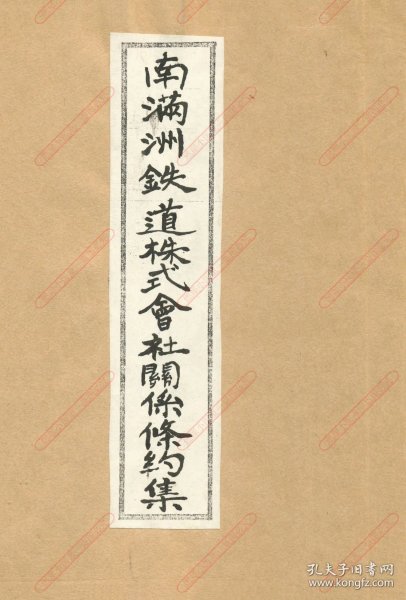 南滿洲鉄道株式會社關係條約集
孔夫子旧书网
www.kongfz.com